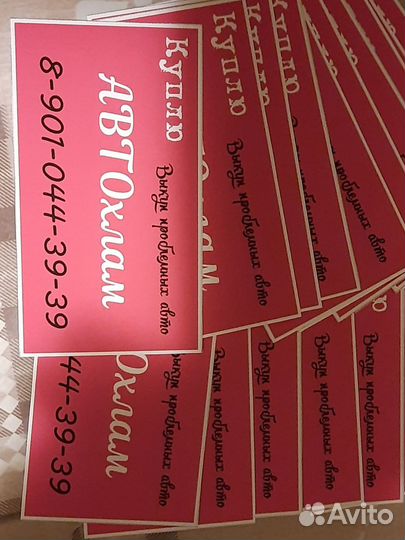 Куплю
АВТОхлам
Выкуп проблемных авто
8-901-044-39-39
Куплю
Выкуп проблемных авто
Куплю
Выкуп проблемных авто
Выкуп проблемных авто
Выкуп проблемных авто
Выкуп проблемных авто
Выкуп проблемных авто
44-39-39
Avito